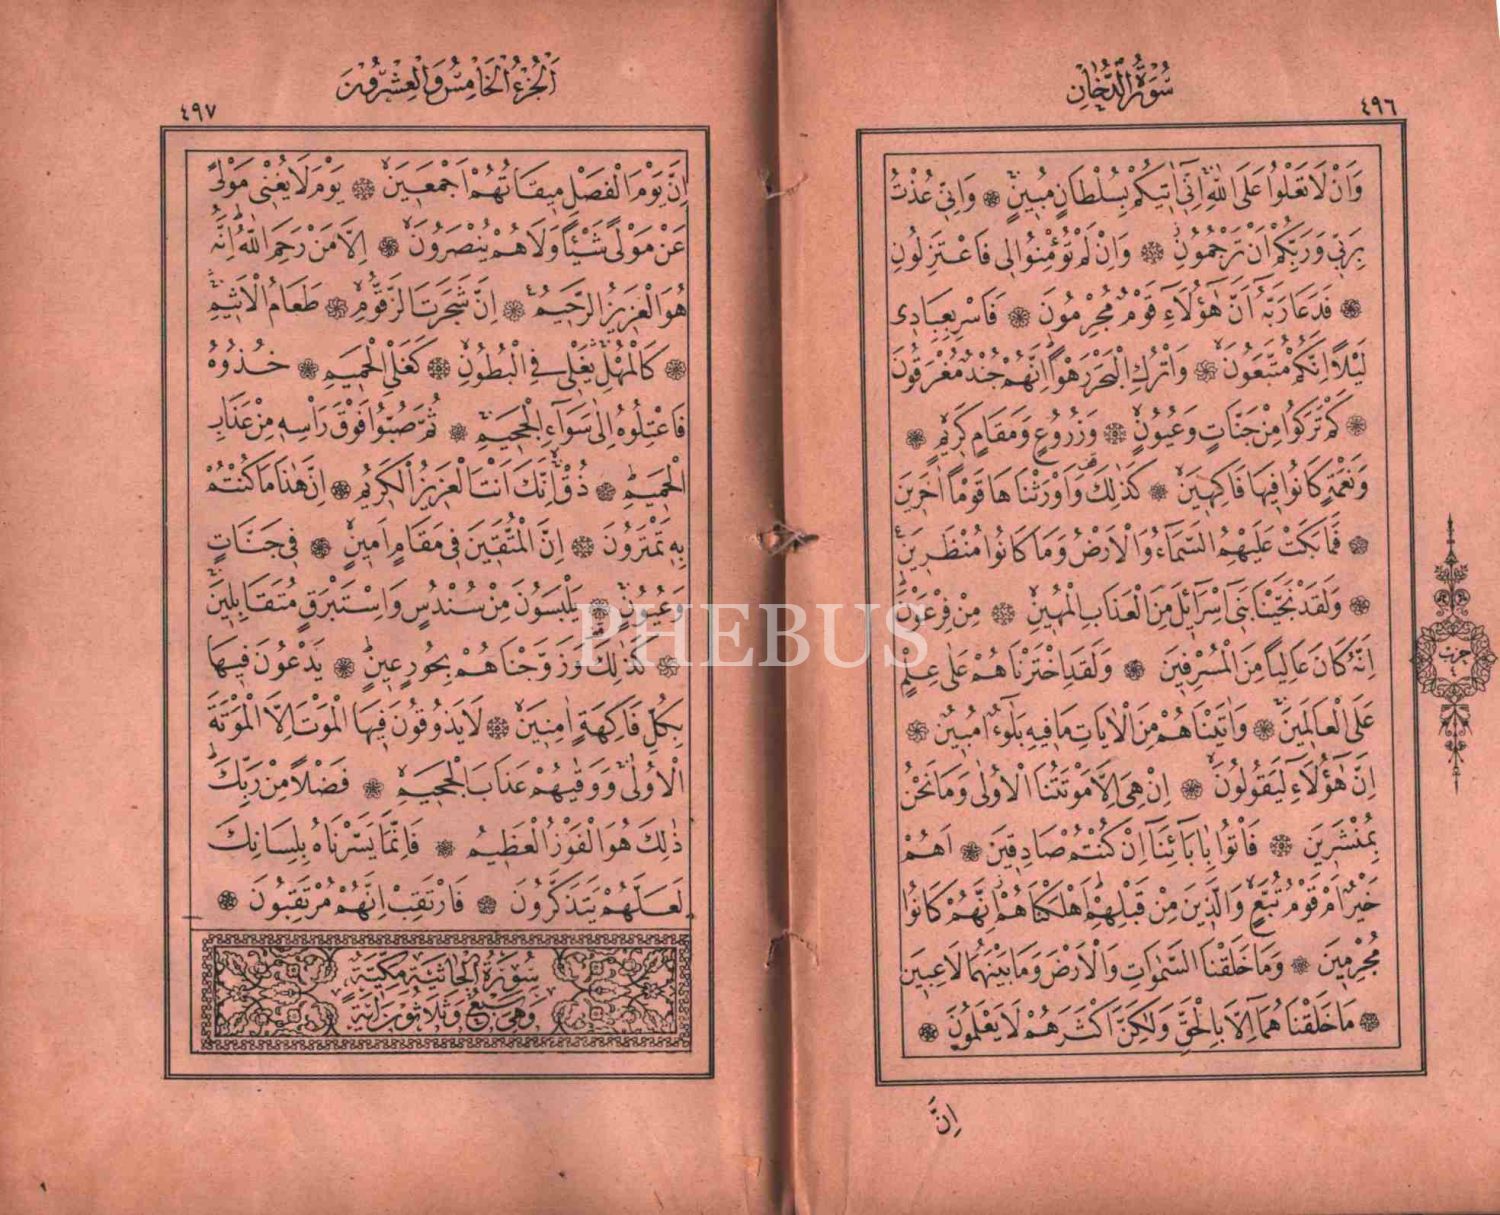 سُورَةُ الدُّخَانِ
٤٩٦
وَاَنْ لَا تَعْلُوا عَلَى اللّٰهِ اِنّٖٓي اٰتٖيكُمْ بِسُلْطَانٍ مُبٖينٍ ۞ وَاِنّٖي عُذْتُ
بِرَبّٖي وَرَبِّكُمْ اَنْ تَرْجُمُونِ ۞ وَاِنْ لَمْ تُؤْمِنُوا لٖي فَاعْتَزِلُونِ
۞ فَدَعَا رَبَّهُٓ اَنَّ هٰٓؤُلَٓاءِ قَوْمٌ مُجْرِمُونَ ۞ فَاَسْرِ بِعِبَادٖي
لَيْلًا اِنَّكُمْ مُتَّبَعُونَ ۞ وَاتْرُكِ الْبَحْرَ رَهْوًا اِنَّهُمْ جُنْدٌ مُغْرَقُونَ
۞ كَمْ تَرَكُوا مِنْ جَنَّاتٍ وَعُيُونٍ ۞ وَزُرُوعٍ وَمَقَامٍ كَرٖيمٍ ۞
وَنَعْمَةٍ كَانُوا فٖيهَا فَاكِهٖينَ ۞ كَذٰلِكَ وَاَوْرَثْنَاهَا قَوْمًا اٰخَرٖينَ
۞ فَمَا بَكَتْ عَلَيْهِمُ السَّمَٓاءُ وَالْاَرْضُ وَمَا كَانُوا مُنْظَرٖينَ
۞ وَلَقَدْ نَجَّيْنَا بَنٖٓي اِسْرَٓائٖلَ مِنَ الْعَذَابِ الْمُهٖينِ ۞ مِنْ فِرْعَوْنَ
اِنَّهُ كَانَ عَالِيًا مِنَ الْمُسْرِفٖينَ ۞ وَلَقَدِ اخْتَرْنَاهُمْ عَلٰى عِلْمٍ
عَلَى الْعَالَمٖينَ ۞ وَاٰتَيْنَاهُمْ مِنَ الْاٰيَاتِ مَا فٖيهِ بَلٰٓؤٌا مُبٖينٌ ۞
اِنَّ هٰٓؤُلَٓاءِ لَيَقُولُونَ ۞ اِنْ هِيَ اِلَّا مَوْتَتُنَا الْاُولٰى وَمَا نَحْنُ
بِمُنْشَرٖينَ ۞ فَاْتُوا بِاٰبَٓائِنَٓا اِنْ كُنْتُمْ صَادِقٖينَ ۞ اَهُمْ
خَيْرٌ اَمْ قَوْمُ تُبَّعٍ وَالَّذٖينَ مِنْ قَبْلِهِمْ اَهْلَكْنَاهُمْ اِنَّهُمْ كَانُوا
مُجْرِمٖينَ ۞ وَمَا خَلَقْنَا السَّمٰوَاتِ وَالْاَرْضَ وَمَا بَيْنَهُمَا لَاعِبٖينَ
۞ مَا خَلَقْنَاهُمَٓا اِلَّا بِالْحَقِّ وَلٰكِنَّ اَكْثَرَهُمْ لَا يَعْلَمُونَ ۞
اِنَّ
حزب
٤
اَلْجُزْءُ الْخَامِسُ وَالْعِشْرُونَ
٤٩٧
اِنَّ يَوْمَ الْفَصْلِ مٖيقَاتُهُمْ اَجْمَعٖينَ ۞ يَوْمَ لَا يُغْنٖي مَوْلًى
عَنْ مَوْلًى شَيْـًٔا وَلَا هُمْ يُنْصَرُونَ ۞ اِلَّا مَنْ رَحِمَ اللّٰهُ اِنَّهُ
هُوَ الْعَزٖيزُ الرَّحٖيمُ ۞ اِنَّ شَجَرَتَ الزَّقُّومِ ۞ طَعَامُ الْاَثٖيمِ
۞ كَالْمُهْلِ يَغْلٖي فِي الْبُطُونِ ۞ كَغَلْيِ الْحَمٖيمِ ۞ خُذُوهُ
فَاعْتِلُوهُ اِلٰى سَوَٓاءِ الْجَحٖيمِ ۞ ثُمَّ صُبُّوا فَوْقَ رَاْسِهٖ مِنْ عَذَابِ
الْحَمٖيمِ ۞ ذُقْ اِنَّكَ اَنْتَ الْعَزٖيزُ الْكَرٖيمُ ۞ اِنَّ هٰذَا مَا كُنْتُمْ
بِهٖ تَمْتَرُونَ ۞ اِنَّ الْمُتَّقٖينَ فٖي مَقَامٍ اَمٖينٍ ۞ فٖي جَنَّاتٍ
وَعُيُونٍ ۞ يَلْبَسُونَ مِنْ سُنْدُسٍ وَاِسْتَبْرَقٍ مُتَقَابِلٖينَ
۞ كَذٰلِكَ وَزَوَّجْنَاهُمْ بِحُورٍ عٖينٍ ۞ يَدْعُونَ فٖيهَا
بِكُلِّ فَاكِهَةٍ اٰمِنٖينَ ۞ لَا يَذُوقُونَ فٖيهَا الْمَوْتَ اِلَّا الْمَوْتَةَ
الْاُولٰى وَوَقٰيهُمْ عَذَابَ الْجَحٖيمِ ۞ فَضْلًا مِنْ رَبِّكَ
ذٰلِكَ هُوَ الْفَوْزُ الْعَظٖيمُ ۞ فَاِنَّمَا يَسَّرْنَاهُ بِلِسَانِكَ
لَعَلَّهُمْ يَتَذَكَّرُونَ ۞ فَارْتَقِبْ اِنَّهُمْ مُرْتَقِبُونَ ۞
سُورَةُ الْجَاثِيَةِ مَكِّيَّةٌ
وَهِيَ سَبْعٌ وَثَلَاثُونَ اٰيَةً
PHEBUS
١